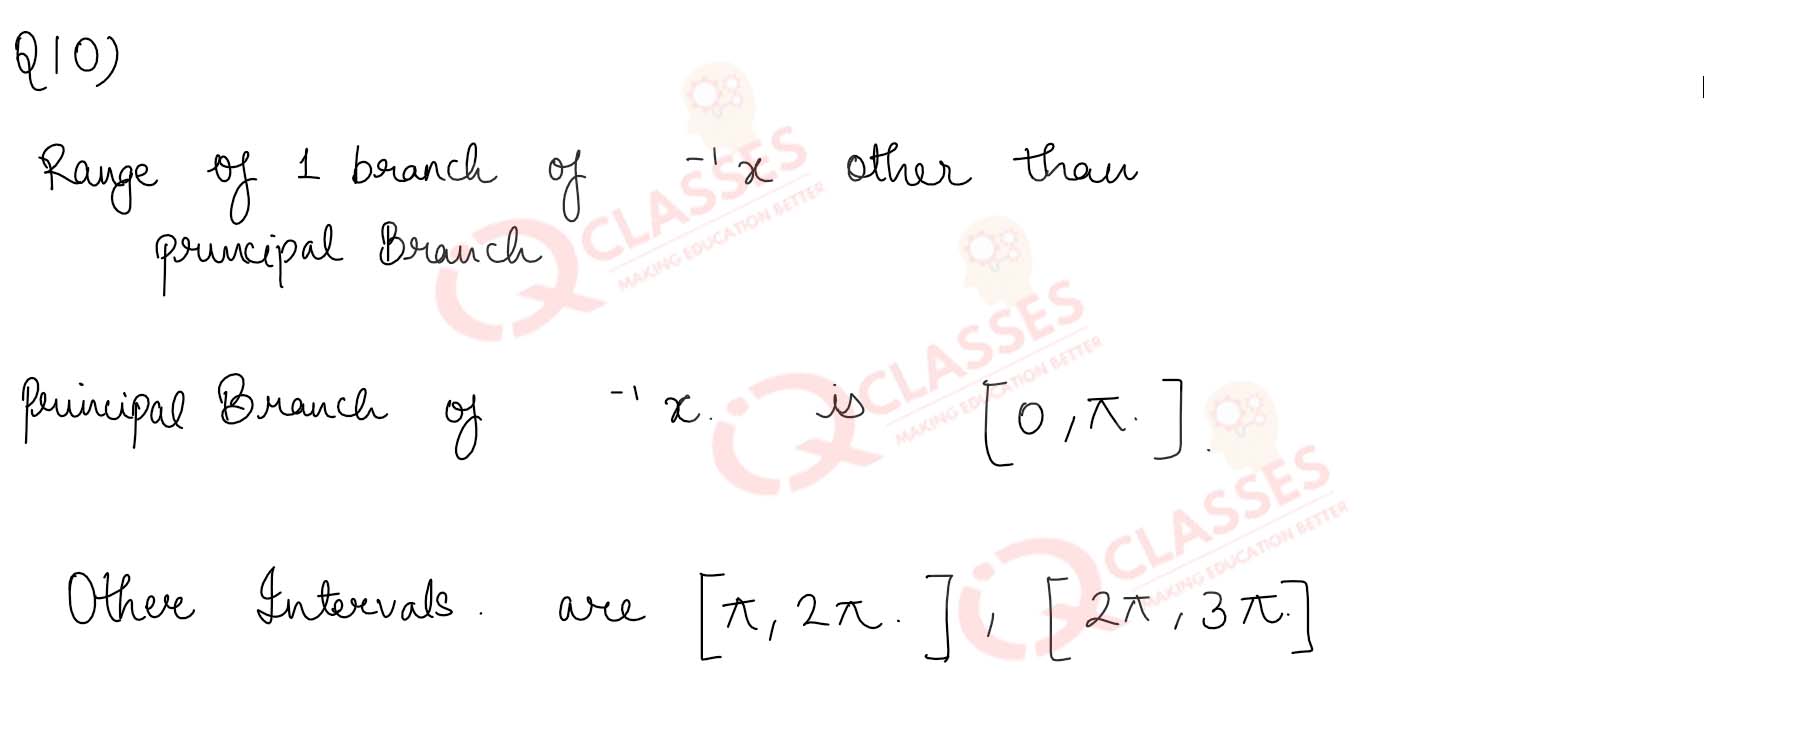 Q10)
Range of 1 branch of ⁻¹x other than
principal Branch
Principal Branch of ⁻¹x. is [0, π.].
Other Intervals. are [π, 2π.], [2π, 3π.]
CLASSES
MAKING EDUCATION BETTER
CLASSES
MAKING EDUCATION BETTER
CLASSES
MAKING EDUCATION BETTER